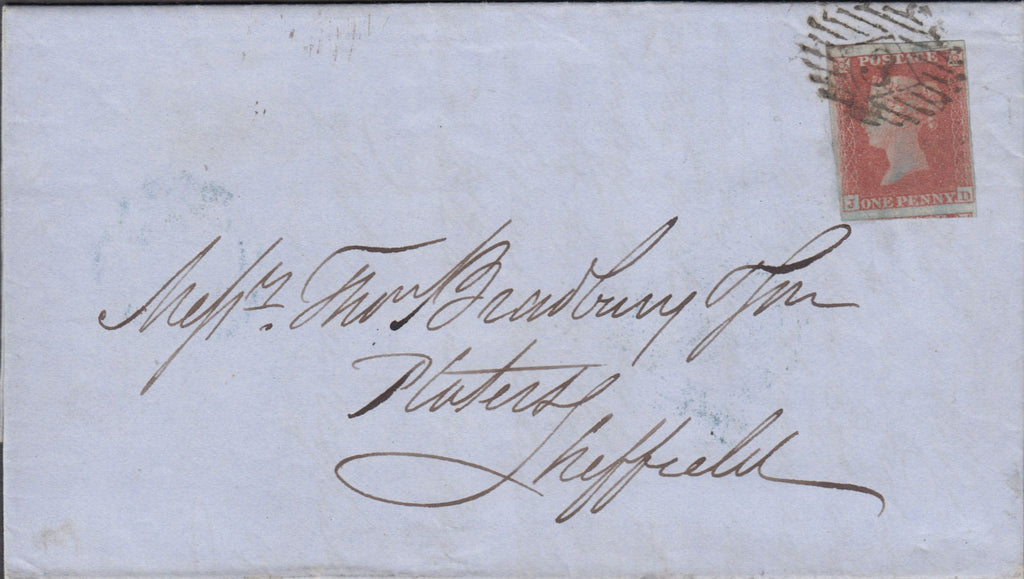 POSTAGE
J ONE PENNY. D
Messrs. Thos Bradbury & Son
Platers
Sheffield